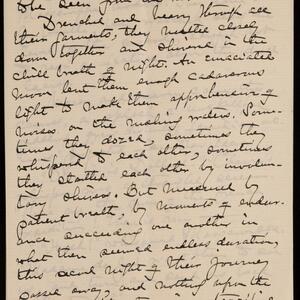 Drenched and weary through all
their garments, they nestled closely
down together and shivered in the
chill breath of night. An emaciated
moon lent them enough cadaverous
light to make them apprehensive of
noises on the making waters. Some-
times they dozed, sometimes they
whispered to each other, sometimes
they startled each other by involun-
tary shivers. But measured by
patient breath, by moments of endur-
ance succeeding one another in
what then seemed endless duration,
this second night of their journey
passed away, and nothing upon the